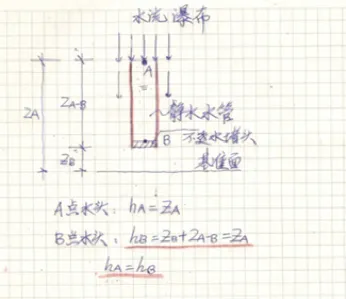 水流瀑布
A
Z_A
Z_{A-B}
静水水管
B
不透水堵头
Z_B
基准面
A点水头: h_A = Z_A
B点水头: h_B = Z_B + Z_{A-B} = Z_A
h_A = h_B